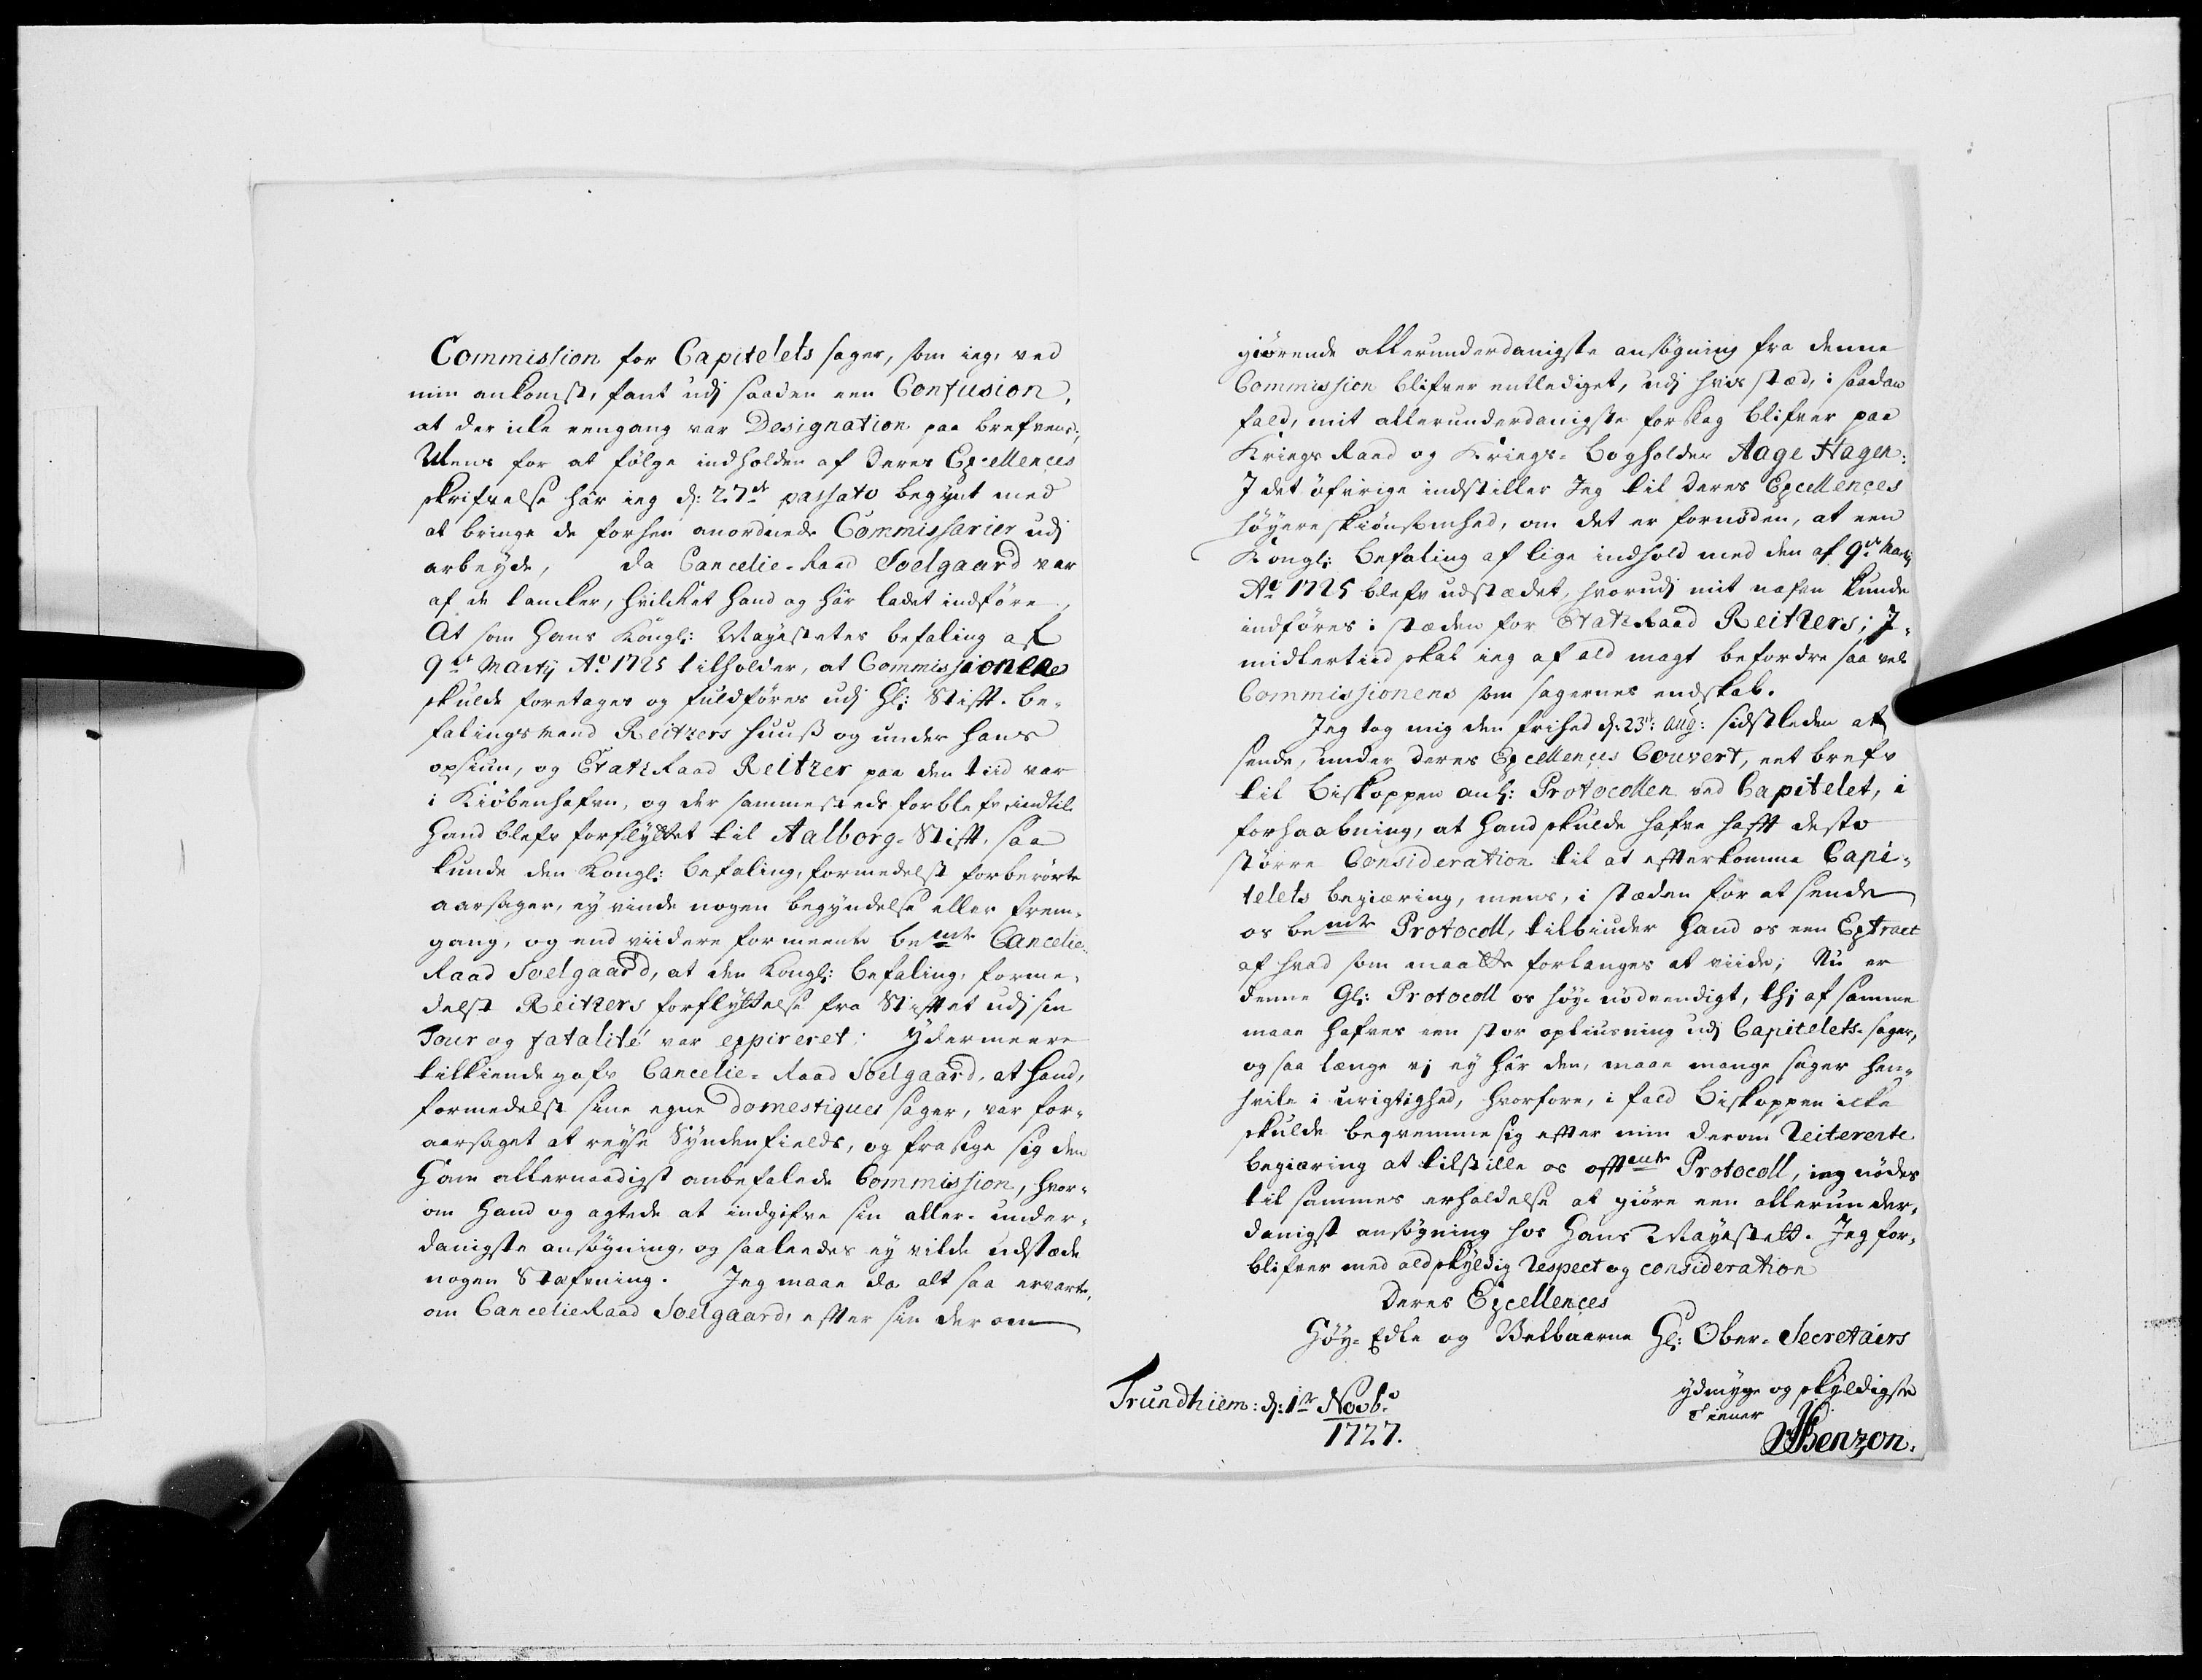 Commission for Capitelets sager, som ieg, ved
min ankomst, fant udj saaden een Confusion,
at der icke eengang var Designation paa brefvene;
Mens for at følge indholden af Deres Excellences
skrifvelse har ieg d: 27de passato begynt med
at bringe de forhen anordnede Commissarier udj
arbeyde, da Cancelie-Raad Soelgaard var
af de tancker, hvilcket hand og har ladet indføre,
At som Hans Kongl: Mayestetes befaling af
9de Martij Ao. 1725 tilholder, at Commissionerne
skulde foretages og fuldføres udj Hl: Stift-be-
falingsmand Reitzers huuss og under hans
opsiun, og Etatz Raad Reitzer paa den tiid var
i Kiøbenhafvn, og der sammesteds forblef indtil
Hand blefv forflyttet til Aalborg-Stift, saa
kunde den Kongl: befaling, formedelst forberørte
aarsager, ey vinde nogen begyndelse eller frem-
gang, og end viidere formeente bemte Cancelie-
Raad Soelgaard, at den Kongl: befaling, forme-
delst Reitzers forflyttelse fra Stiftet udj sin
Tour og fatalité var expireret; Ydermeere
tilkiende gafv Cancelie-Raad Soelgaard, at Hand,
formedelst sine egne domestiques sager, var for-
aarsaget at reyse Syndenfields, og frasige sig den
Ham allernaadigst anbefalede Commission, hvor-
om Hand og agtede at indgifve sin aller-under-
danigste ansøgning, og saaleedes ey vilde udstæde
nogen Stæfvning. Jeg maae da alt saa ervarte,
om Cancelie Raad Soelgaard, efter sin derom
giørende allerunderdanigste ansøgning fra denne
Commission blifver entlediget, udj hvis stæd, i saadan
fald, mit allerunderdanigste forslag blifver paa
Kriegs Raad og Kriegs-Bogholder Aage Hagen:
I det øfvrige indstiller Jeg til Deres Excellences
høyere skiønsomhed, om det er fornøden, at een
Kongl: Befaling af lige indhold med den af 9de Martij
Ao 1725 blefv udstædet, hvorudj mit nafvn kunde
indføres i stæden for Etatz Raad Reitzers; I-
midlertiid skal ieg af ald magt befordre saa vel
Commissionens som sagernes endskab.
Jeg tog mig den frihed d: 23de: Aug: sidstleden at
sende, under Deres Excellences Couvert, eet brefv
til Biskoppen anl: Protocollen ved Capitelet, i
forhaabning, at Hand skulde hafve haft desto
større Consideration til at efterkomme Capi-
telets begiæring, mens, i stæden for at sende
os bemte Protocoll, tilbiuder Hand os een Extract
af hvad som maatte forlanges at viide; Nu er
denne Gl: Protocoll os høy-nødvendigt, thj af samme
maae hafves een stor opliusning udj Capitelets-sager,
og saa længe vj ey har den, maae mange sager hen-
hvile i urigtighed, hvorfore, i fald Biskoppen icke
skulde beqvemme sig efter min derom Reitererte
begiæring at tilstille os oftmte Protocoll, ieg nødes
til sammes erholdelse at giøre een allerunder-
danigst ansøgning hos Hans Mayestett. Jeg for-
blifver med ald skyldig Respect og consideration
Deres Excellences
Høy-Edle og Velbaarne Hl: Ober-Secretairs
ydmyge og skyldigste
Tiener
Benzon.
Trundhiem: d: 1te Novb:
1727.